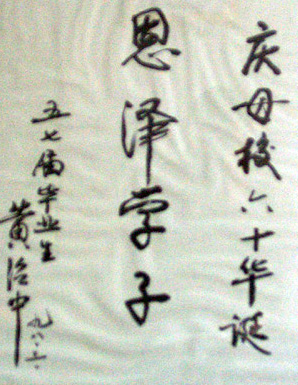 庆母校六十华诞
恩泽学子
五七届毕业生
黄治中
九八.六.